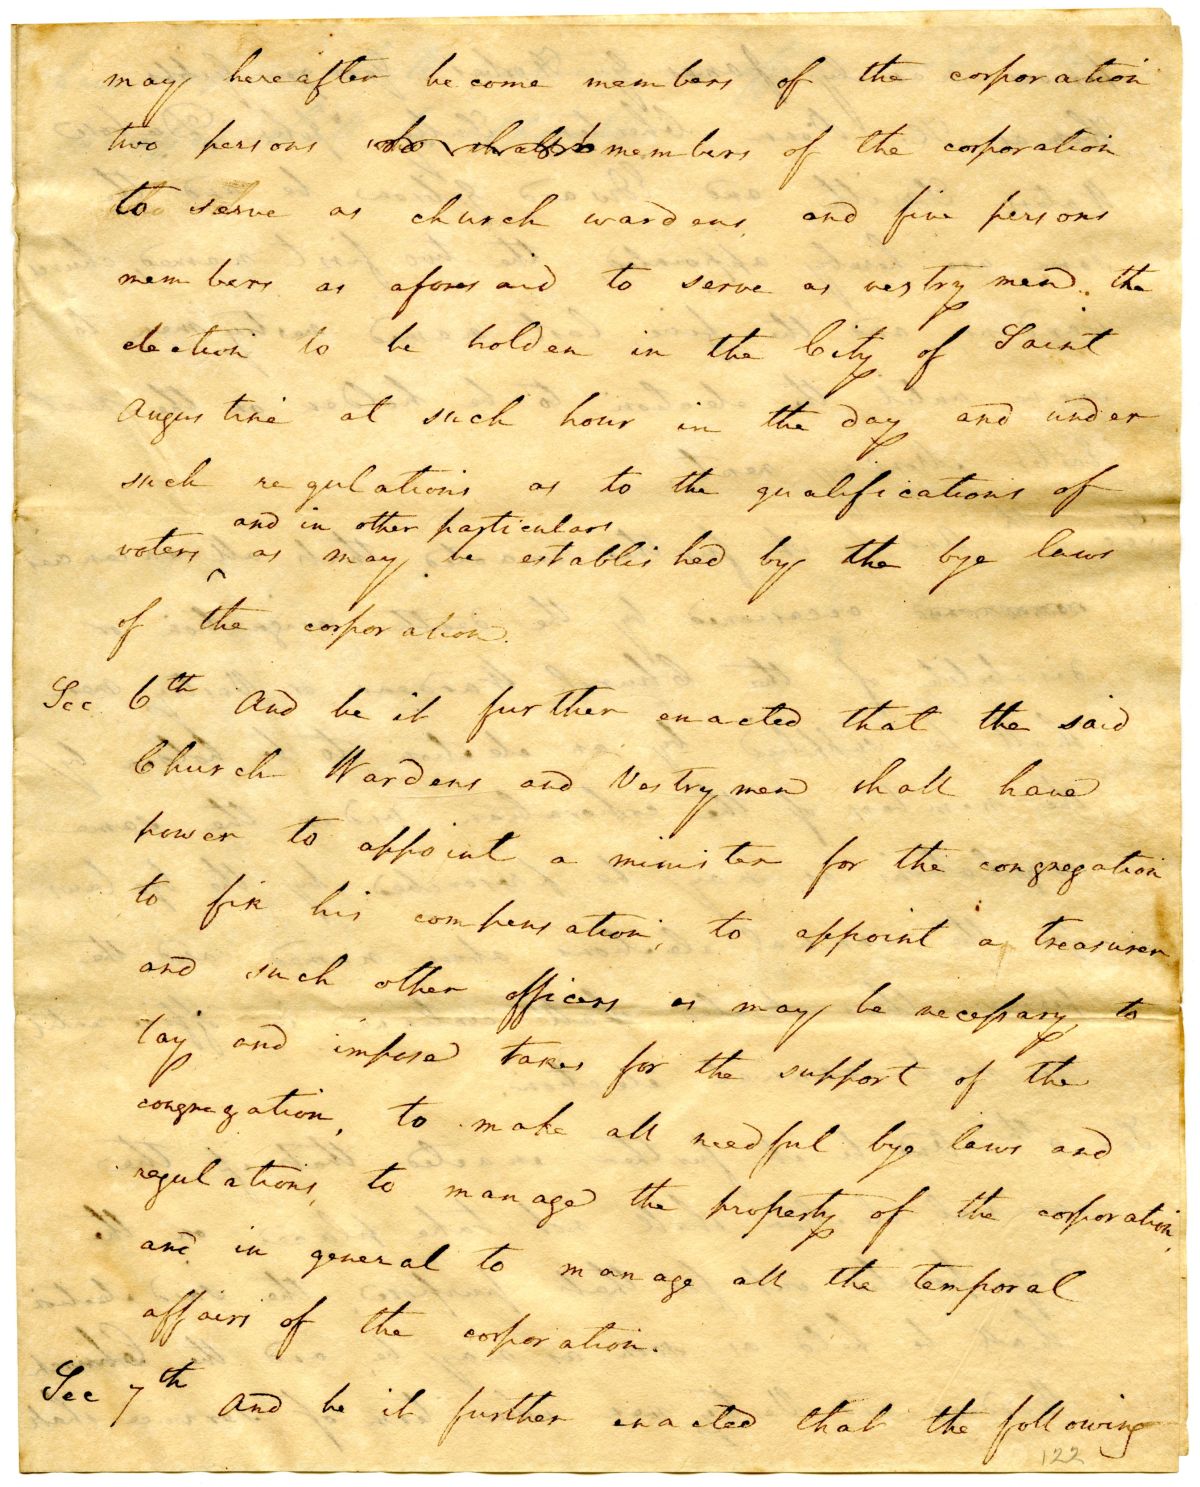 may hereafter become members of the corporation
two persons who shall b members of the corporation
to serve as church wardens, and five persons
members as aforesaid to serve as vestrymen, the
election to be holden in the City of Saint
Augustine at such hour in the day and under
such regulations as to the qualifications of
and in other particulars
voters ‸ as may be established by the bye laws
of the corporation.
Sec 6th And be it further enacted that the said
Church Wardens and Vestrymen shall have
power to appoint a minister for the congregation
to fix his compensation, to appoint a treasurer
and such other officers as may be necessary, to
lay and impose taxes for the support of the
congregation, to make all needful bye laws and
regulations, to manage the property of the corporation,
and in general to manage all the temporal
affairs of the corporation.
Sec 7th And be it further enacted that the following
122